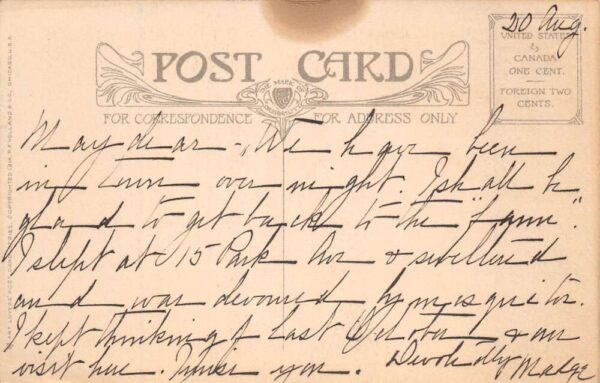 20 Aug.
POST CARD
THE MARK OF
UNITED STATES
&
CANADA.
ONE CENT.
FOREIGN TWO
CENTS.
FOR CORRESPONDENCE
FOR ADDRESS ONLY
May dear - We have been
in town over night. I shall be
glad to get back to the "farm".
I slept at 15 Park Ave & sweltered
and was devoured by mosquitos.
I kept thinking of last October & our
visit here. I miss you. Devotedly Madge